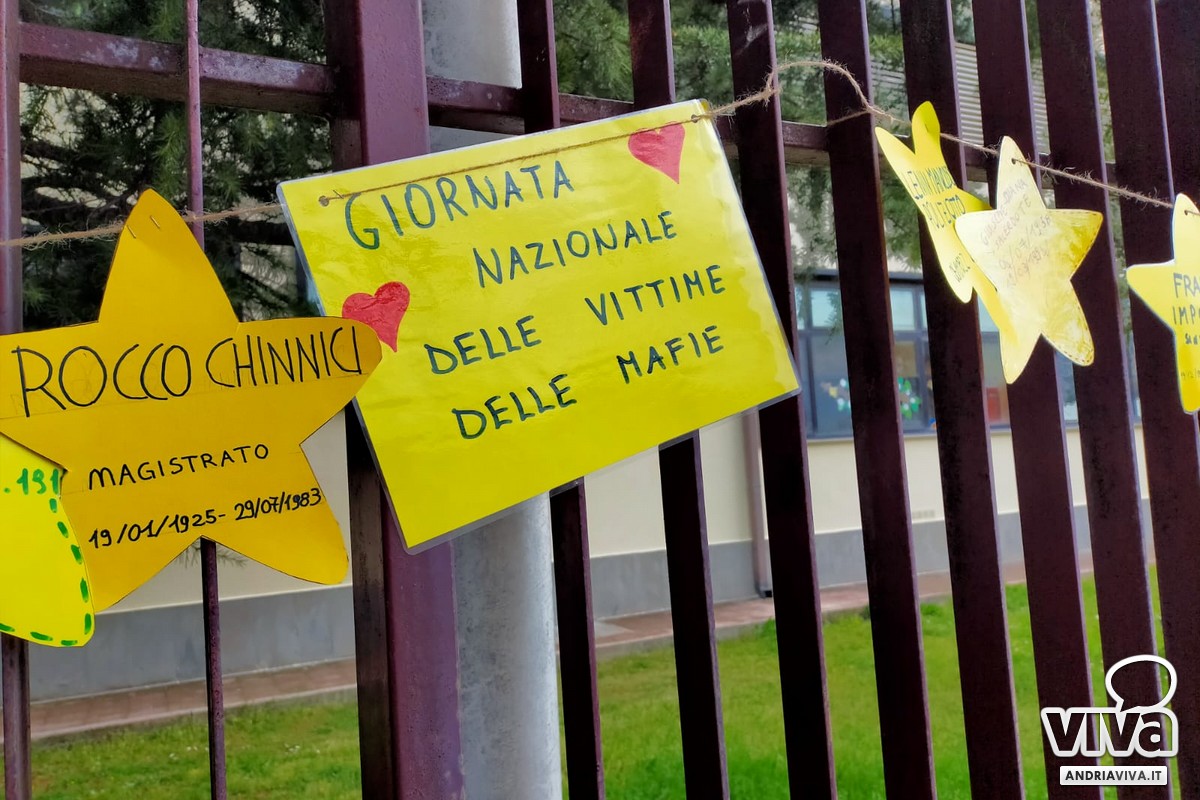 ROCCO CHINNICI
MAGISTRATO
19/01/1925- 29/07/1983
.191
GIORNATA
NAZIONALE
DELLE VITTIME
DELLE MAFIE
FRA
IMPO
VIVA
ANDRIAVIVA.IT